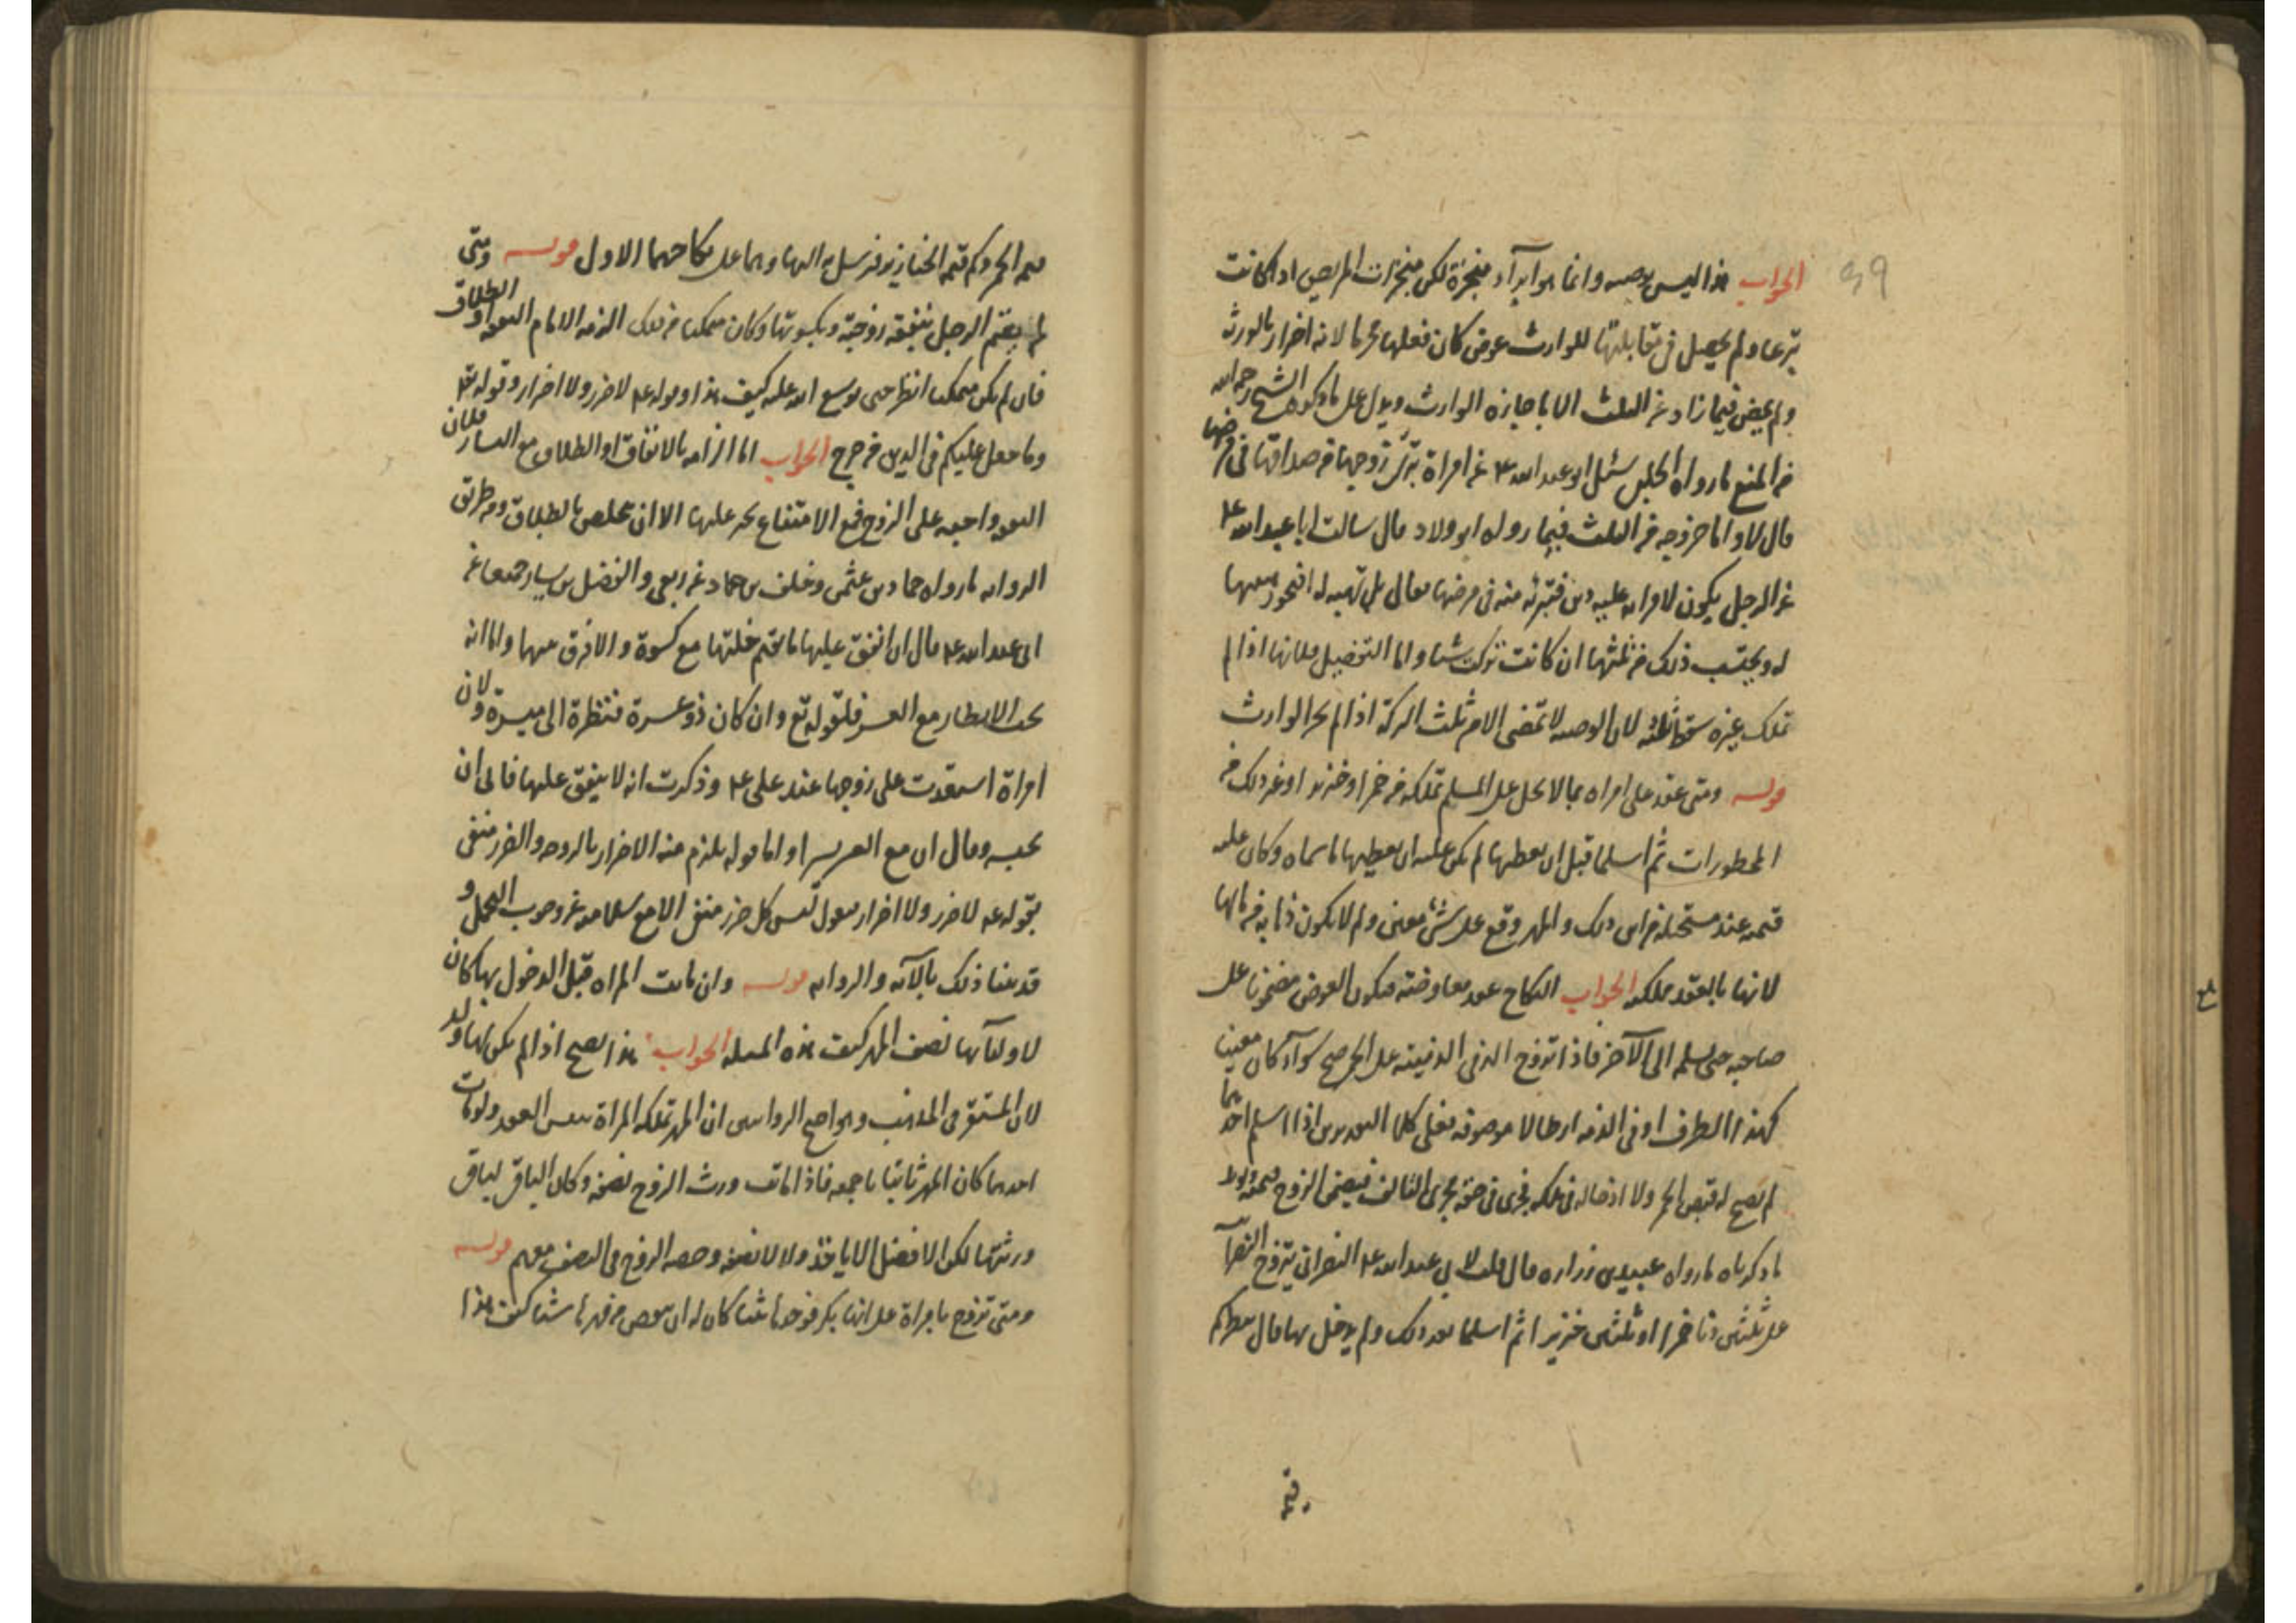 الجواب هذا ليس بوصية وانما هو ابراء منجزة لكن منجزات المريض اذا كانت
تبرعا ولم يحصل في مقابلتها للوارث عوض كان فعلها محرما لانه اضرار بالورثة
ولم يمض فيما زاد عن الثلث الا باجازه الوارث ويدل على ما ذكره الشيخ رحمه الله
من المنع ما رواه الحلبي سئل ابو عبد الله ع عن امراة تبرئ زوجها من صداقها في مرضها
قال لا واما خروجه من الثلث فيما رواه ابو ولاد قال سالت ابا عبد الله ع
عن الرجل يكون لامراته عليه دين فتبرئه منه في مرضها فقال بل تهبه له فتجوز هبتها
له ويحتسب ذلك من ثلثها ان كانت تركت شيئا واما التفصيل فلانها اذا لم
تملك غيره سقط ثلثه لان الوصية لا تمضى الا من ثلث التركة اذا لم يجز الوارث
قوله ومتى عقد على امراه بما لا يحل على المسلم تملكه من خمر او خنزير او غير ذلك من
المحظورات ثم اسلما قبل ان يعطيها لم يكن عليه ان يعطيها ما سماه وكان عليه
قيمته عند مستحليه من اين ذلك والمهر وقع على شئ معين ولم لا يكون ذاهبا من مالها
لانها بالعقد تملكه الجواب النكاح عقد معاوضة فيكون العوض مضمونا على
صاحبه حتى يسلمه الى الآخر فاذا تزوج الذمى الذمية على الخمر صح سواء كان معينا
كهذا الظرف او في الذمه ارطالا موصوفه فعلى كلا التقديرين اذا اسلم احدهما
لم يصح له قبض الخمر ولا ادخاله في ملكه فجرى في حقه مجرى التالف فيضمن الزوج قيمته
ما ذكرناه ما رواه عبيد بن زراره قال قلت لابي عبد الله ع النصراني يتزوج النصرانية
على ثلثين دنا خمرا او ثلثين خنزيرا ثم اسلما بعد ذلك ولم يدخل بها قال ينظر كم
قيمة
قيمة الخمر وكم قيمة الخنازير فيرسل به اليها وهما على نكاحهما الاول قوله ومتى
لم يقم الرجل بنفقة زوجته وبكسوتها وكان متمكنا من ذلك الزمه الامام النفقة او الطلاق
فان لم يكن متمكنا انظر حتى يوسع الله عليه كيف هذا وقوله ع لا ضرر ولا اضرار وقوله تع
وما جعل عليكم في الدين من حرج الجواب اما الزامه بالانفاق او الطلاق مع اليسار فلان
النفقه واجبه على الزوج فمع الامتناع يجبر عليها الا ان يتخلص بالطلاق ومن طريق
الروايه ما رواه حماد بن عثمن وخلف بن حماد عن ربعي والفضل بن يسار جميعا عن
ابى عبد الله ع قال ان انفق عليها ما يقيم خلتها مع كسوة والا فرق بينهما واما انه
يجب الانظار مع العسر فلقوله تع وان كان ذو عسرة فنظرة الى ميسرة ولان
امراة استعدت على زوجها عند على ع وذكرت انه لا ينفق عليها فابى ان
يحبسه وقال ان مع العسر يسرا واما قوله يلزم منه الاضرار بالزوجه والضرر منفى
بقوله ع لا ضرر ولا اضرار فنقول ليس كل ضرر منفى الا مع سلامته عن وجوب التحمل و
قد بينا ذلك بالآيه والروايه قوله وان ماتت المراه قبل الدخول بها كان
لاوليائها نصف المهر كيف هذه المسله الجواب هذا يصح اذا لم يكن لها ولد
لان المستقر في المذهب وهو اصح الروايتين ان المهر تملكه المراة بنفس العقد ولو مات
احدهما كان المهر ثابتا باجمعه فاذا ماتت ورث الزوج نصفه وكان الباقى لباقى
ورثتها لكن الافضل الا ياخذ ولا لا نصفه وحصه الزوج في النصف معهم قوله
ومتى تزوج بامراة على انها بكر فوجدها ثيبا كان له ان ينقص من مهرها شيئا كيف هذا